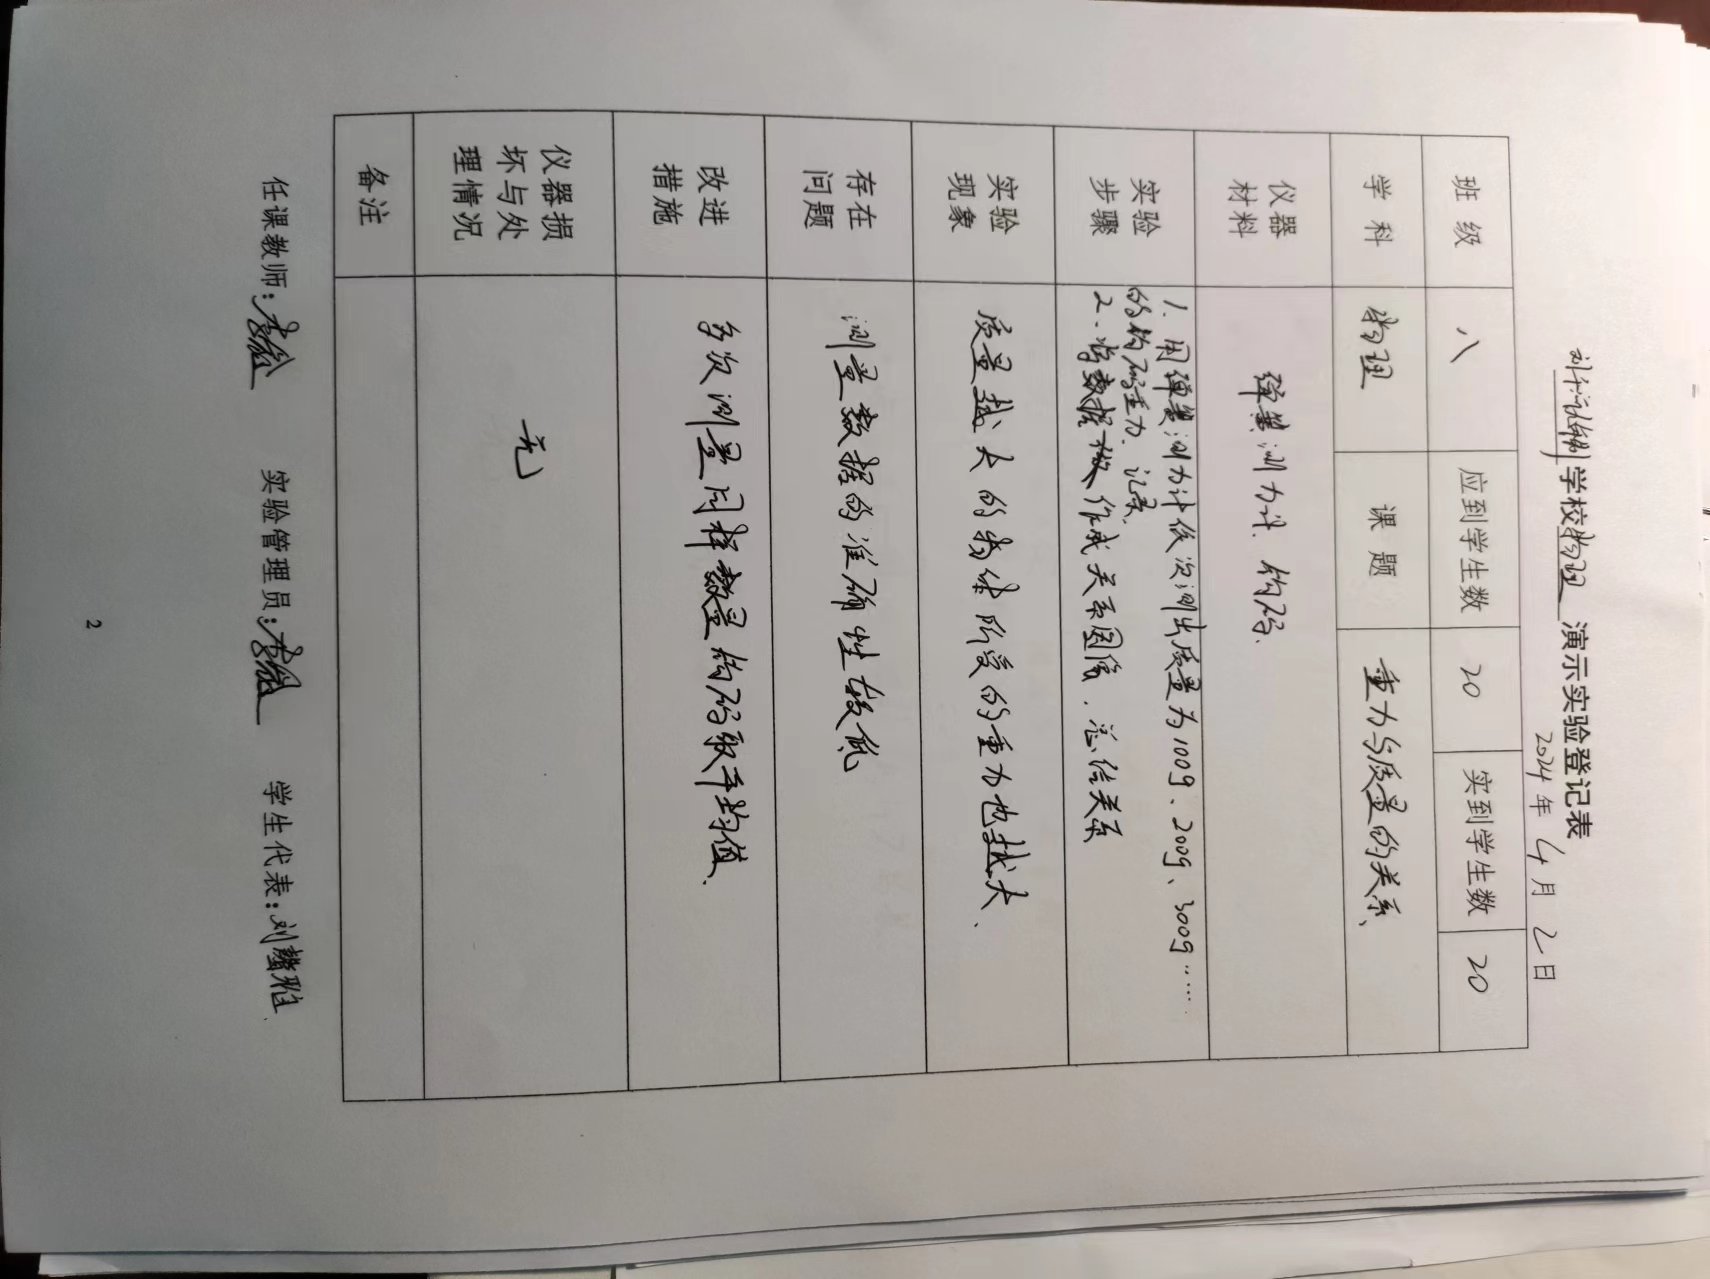 学校物理 演示实验登记表
2024年4月2日
班级 八 应到学生数 20 实到学生数 20
学科 物理 课题 重力与质量的关系.
仪器材料 弹簧测力计、钩码.
实验步骤
1. 用弹簧测力计依次测出质量为100g、200g、300g……
的钩码重力、记录.
2、将数据做作成关系图像,总结关系
实验现象 质量越大的物体所受的重力也越大.
存在问题 测量数据的准确性较低
改进措施 多次测量同样数量钩码取平均值.
仪器损坏与处理情况 无
备注
任课教师: 实验管理员: 学生代表:刘馨雅
2